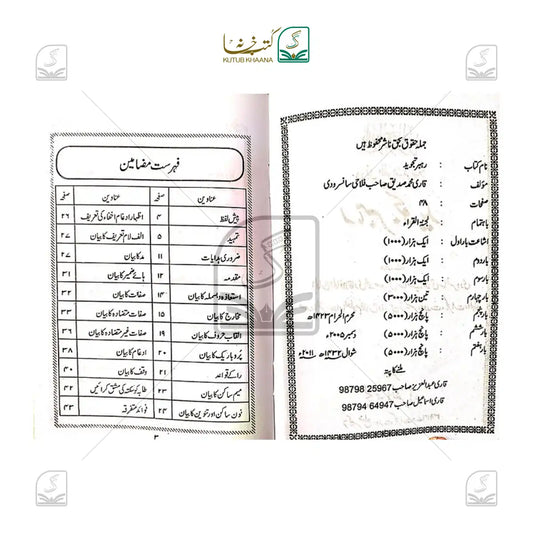 کتب خانہ
KUTUB KHAANA
جملہ حقوق بحق ناشر محفوظ ہیں
نام کتاب : رہبر تجوید
مؤلف : قاری محمد صدیق صاحب فلاحی سانسرودی
صفحات : ۴۸
باہتمام : لجنۃ القراء
اشاعت بار اول : ایک ہزار (۱۰۰۰)
بار دوم : ایک ہزار (۱۰۰۰)
بار سوم : ایک ہزار (۱۰۰۰)
بار چہارم : تین ہزار (۳۰۰۰)
بار پنجم : پانچ ہزار (۵۰۰۰) محرم الحرام ۱۴۲۳ھ
بار ششم : پانچ ہزار (۵۰۰۰) دسمبر ۲۰۰۵ء
بار ہفتم : پانچ ہزار (۵۰۰۰) شوال ۱۴۳۲ھ ۲۰۱۱ء
ملنے کا پتہ
قاری عبدالعزیز صاحب 98798 25967
قاری اسماعیل صاحب 98794 64947
فہرست مضامین
عناوین صفحہ عناوین صفحہ
پیش لفظ ۴ اظہار ادغام اخفاء کی تعریف ۲۶
تمہید ۵ الف لام تعریف کا بیان ۲۷
ضروری ہدایات ۱۱ مد کا بیان ۲۷
مقدمہ ۱۲ ہائے ضمیر کا بیان ۳۱
استعاذہ و بسملہ کا بیان ۱۴ صفات کا بیان ۳۲
مخارج کا بیان ۱۵ صفات متضادہ کا بیان ۳۳
القاب حروف کا بیان ۱۹ صفات غیر متضادہ کا بیان ۳۶
پُر و باریک کا بیان ۲۰ ادغام کا بیان ۳۸
را کے قواعد ۲۱ وقف کا بیان ۴۰
میم ساکن کا بیان ۲۳ طلبہ کو سکتہ کی مشق کرائیں ۴۲
نون ساکن اور تنوین کا بیان ۲۴ فوائد متفرقہ ۴۳
۳